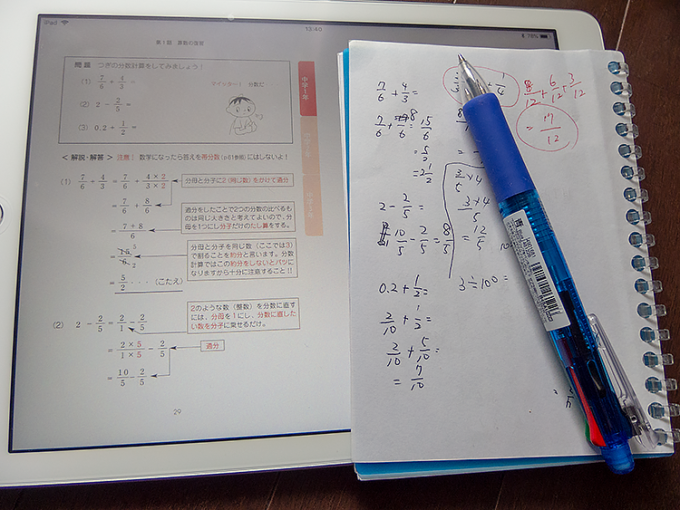 iPad
13:40
78%
第1部 算数の復習
問題 つぎの分数計算をしてみましょう!
(1) 7/6 + 4/3 =
(2) 2 − 2/5 =
(3) 0.2 + 1/2 =
中学1年
< 解説・解答 > 注意! 数学になったら答えを帯分数(p61参照)にはしないよ!
(1) 7/6 + 4/3 = 7/6 + 4×2/3×2
分母と分子に2(同じ数)をかけて通分
= 7/6 + 8/6
= 7+8/6
通分をしたことで2つの分数の比べるものは同じ大きさと考えてよいので、分母を1つにし分子だけのたし算をする。
= 15/6
分母と分子を同じ数(ここでは3)で割ることを約分と言います。分数計算ではこの約分をしないとバツになりますから十分に注意すること!!
= 5/2 ···(こたえ)
(2) 2 − 2/5 = 2/1 − 2/5
2のような数(整数)を分数に直すには、分母を1にし、分数に直したい数を分子に乗せるだけ。
= 2×5/1×5 − 2/5
通分
= 10/5 − 2/5
29
7/6 + 4/3 =
7/6 + 8/6 = 15/6
= 5/2
= 2 1/2
2 − 2/5 =
10/5 − 2/5 = 8/5
0.2 + 1/2 =
2/10 + 1/2 =
2/10 + 5/10 =
= 7/10
3/5 × 4
3×4/5
= 12/5
3 ÷ 100 =
8/12 + 6/12 + 3/12
17/12